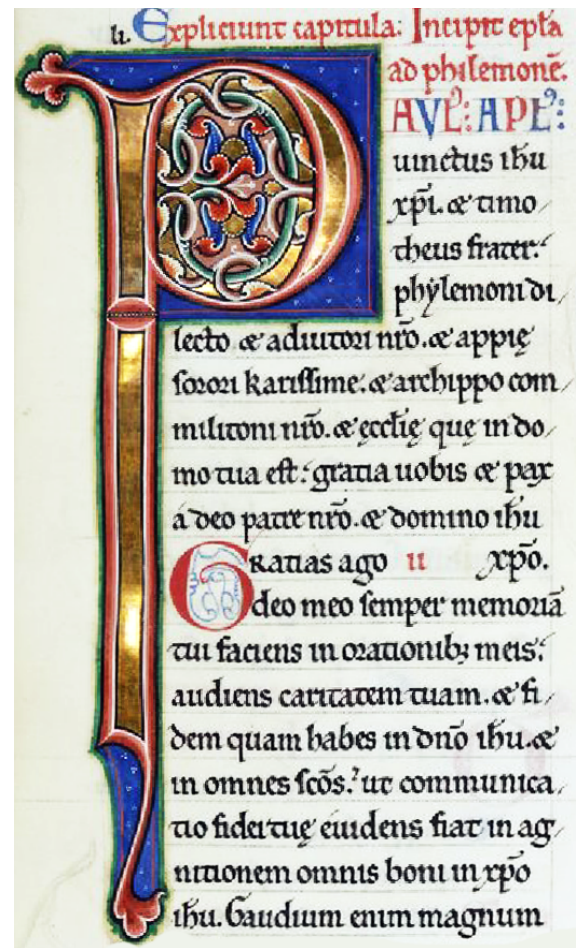 li. Expliciunt capitula: Incipit ep̄ła
ad philemonē.
PAVLꝰ: APLꝰ:
uinctus ihu
xp̄i. & timo
theus frater:
phẏlemoni di
lecto & adiutori nr̄o. & appię
sorori karissime. & archippo com
militoni nr̄o. & ęccłię quę in do
mo tua est: gratia uobis & pax
á deo patre nr̄o. & domino ihu
GRATIAS ago ii xp̄o.
deo meo semper memoriā
tui faciens in orationibꝫ meis:
audiens caritatem tuam. & fi
dem quam habes in dn̄o ihu. &
in omnes sc̄os: ut communica
tio fidei tuę euidens fiat in ag
nitionem omnis boni in xp̄o
ihu. Gaudium enim magnum